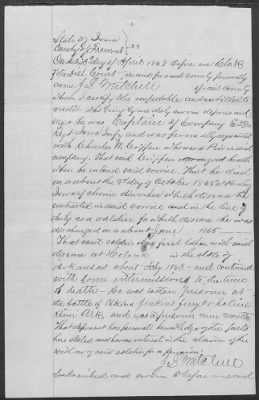 State of Iowa
County of Fremont } SS
On this 3 day of April 1868 before me Clerk
of the Dist Court in and for said county personally
came J. S. Mitchell of said county
whom I certify the respectable and entitled to
credit who being by me duly sworn deposes and
says he was Captain of Company
Regt Iowa Infy and was personally acquainted
with Charles W. Griffin who was a Private in said
company. That said Griffin was in good health
when he entered said service. That he died
on or about the 3 day of October 1865 at his
of chronic diarrhea which disease he
contracted in said service and in the line of
duty as a soldier for which disease he was
discharged on or about June 1865
That said soldier was first taken with said
disease at Helena in the state of
Arkansas about July 1863 and continued
with some intermissions to the time
of death He was taken prisoner at
the battle of Jenkins ferry Saline
River Ark. and was a prisoner nine months
That deponent has personal knowledge of the facts
here stated and has no interest in the claim of the
widow of said soldier for a pension
J. S. Mitchell
Subscribed and sworn to before me and